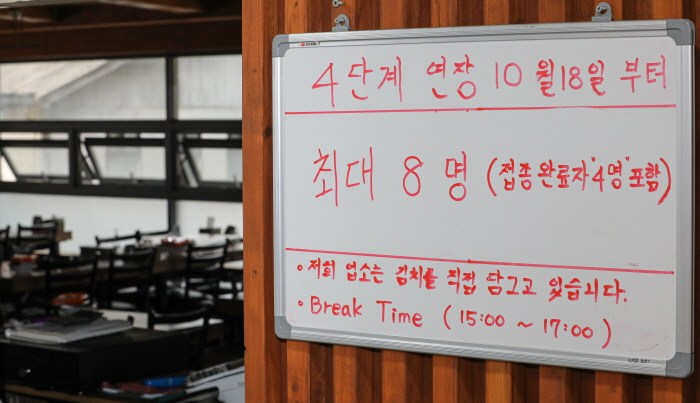 4단계 연장 10월18일 부터
최대 8명 (접종완료자"4명"포함)
• 저희 업소는 김치를 직접 담그고 있습니다.
• Break Time (15:00 ~ 17:00)